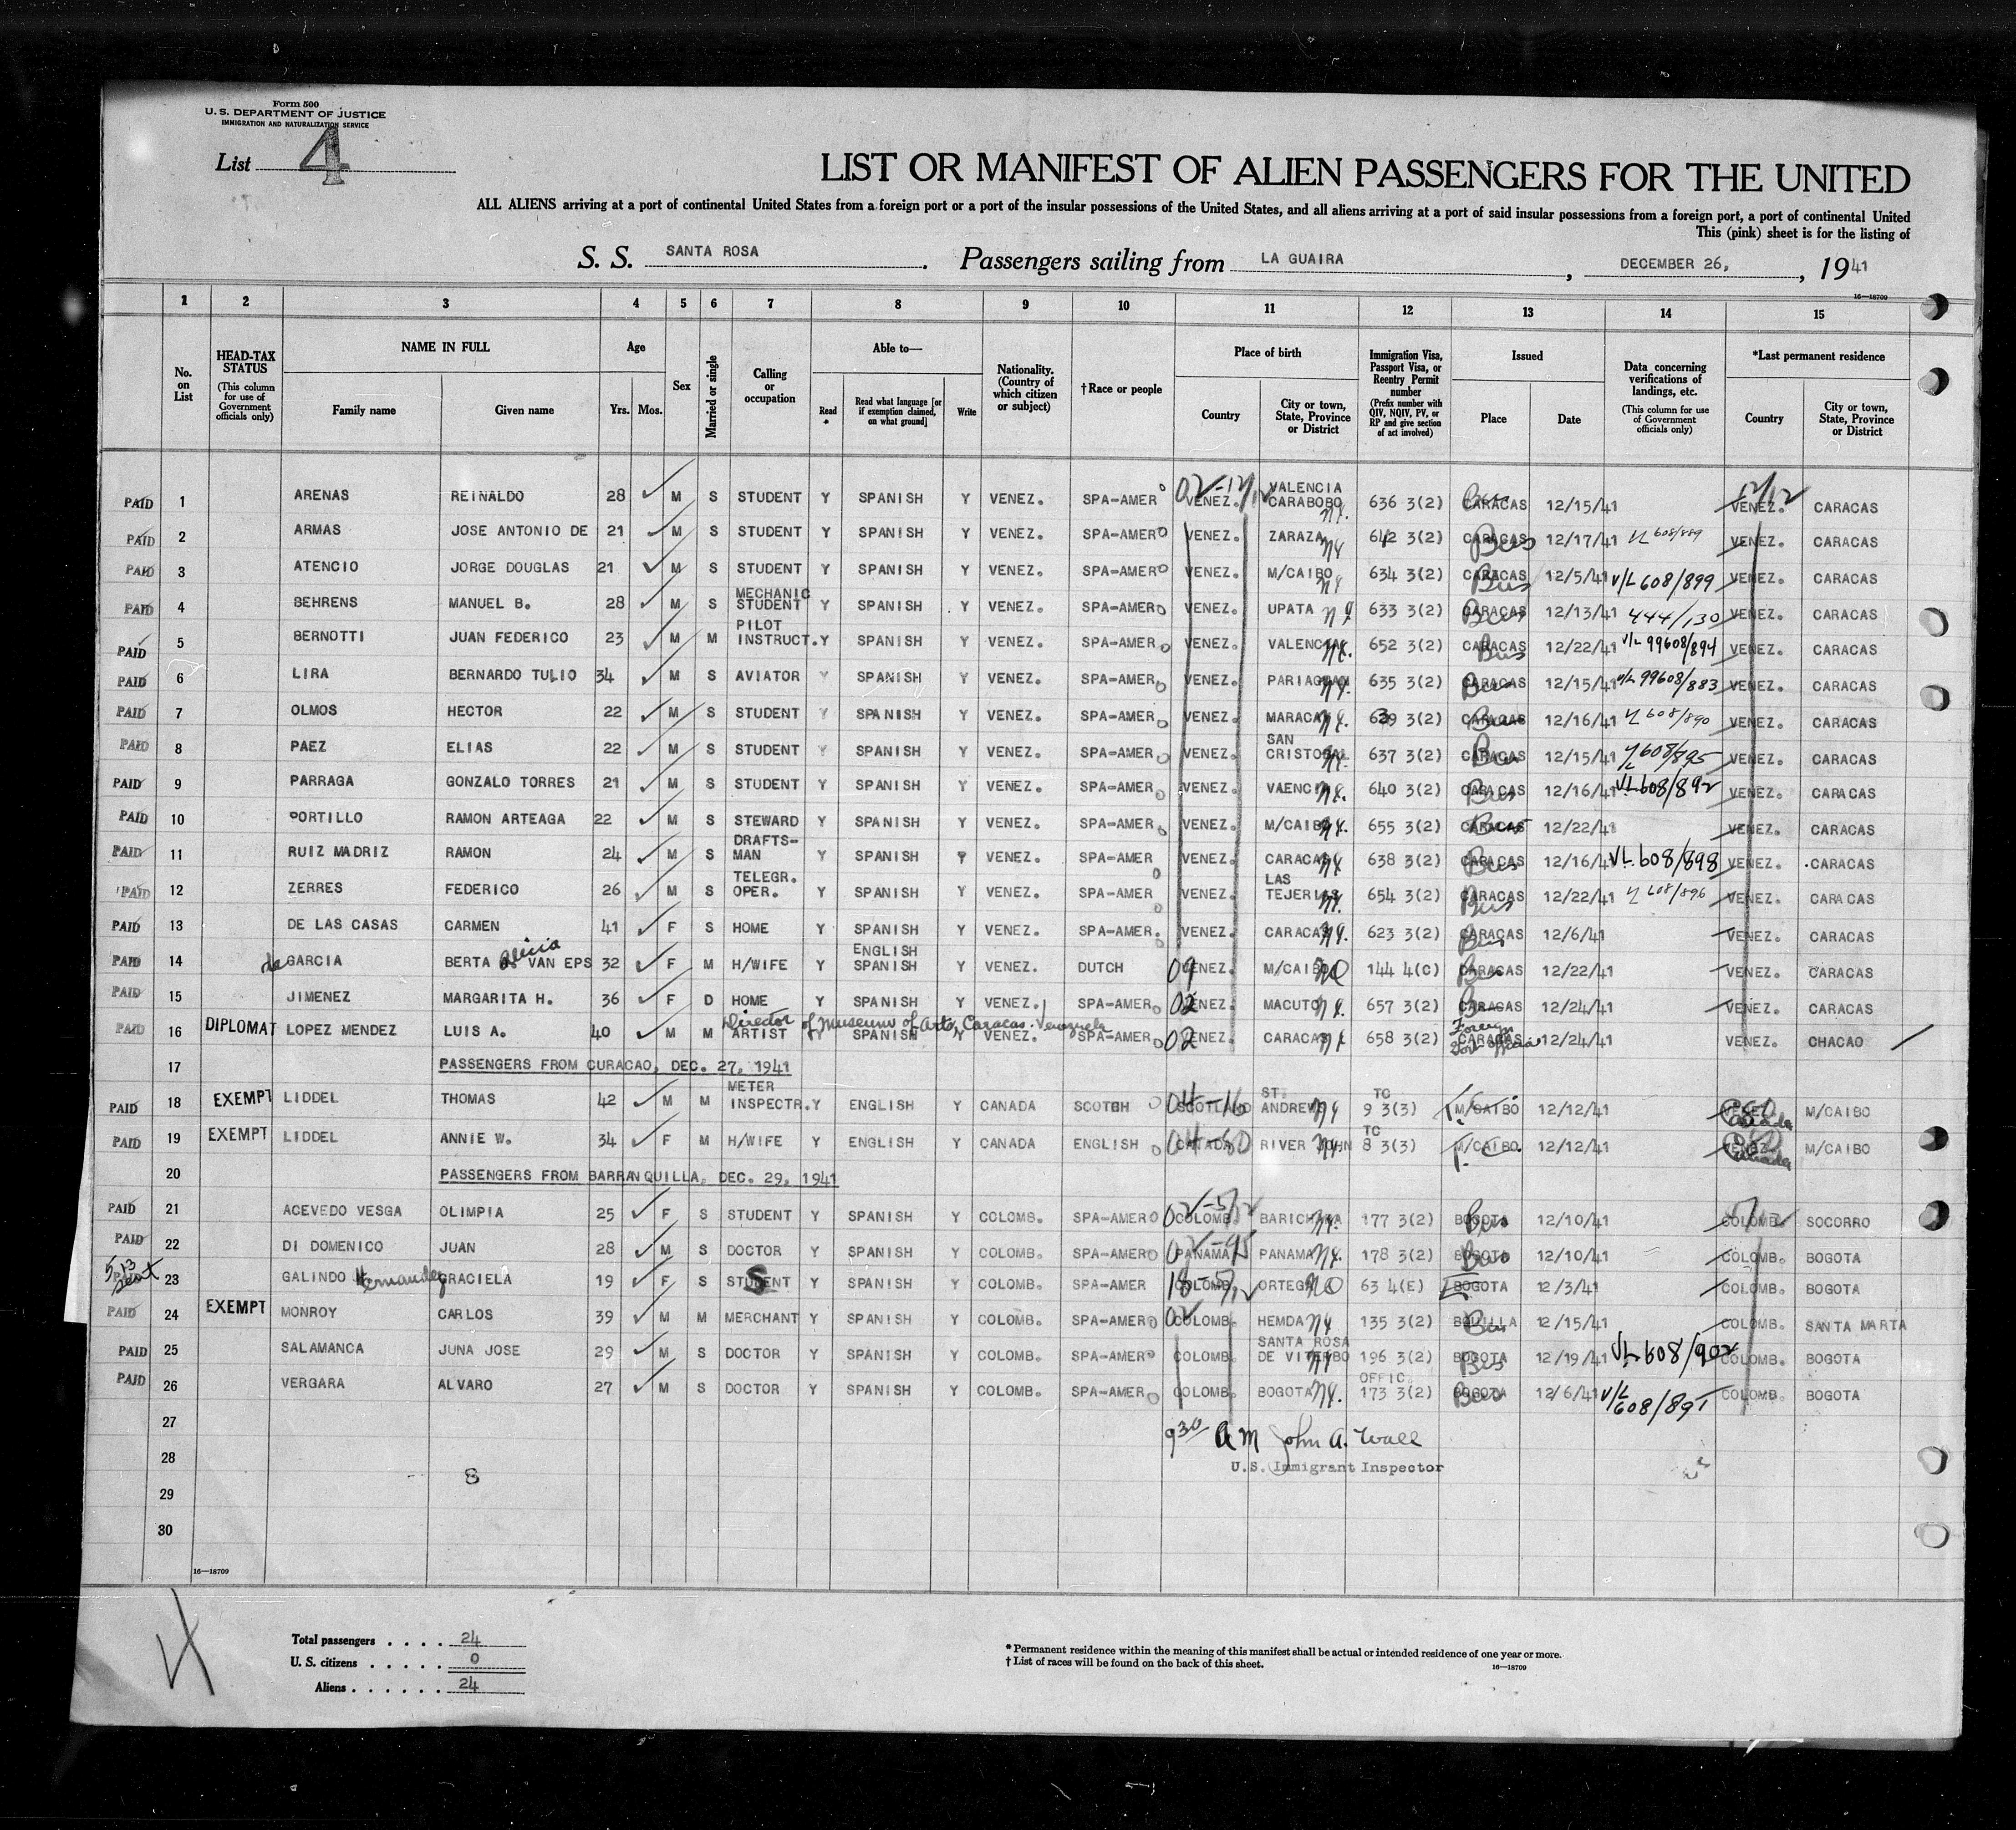 Form 500
U. S. DEPARTMENT OF JUSTICE
IMMIGRATION AND NATURALIZATION SERVICE
List 4
LIST OR MANIFEST OF ALIEN PASSENGERS FOR THE UNITED
ALL ALIENS arriving at a port of continental United States from a foreign port or a port of the insular possessions of the United States, and all aliens arriving at a port of said insular possessions from a foreign port, a port of continental United
This (pink) sheet is for the listing of
S. S. SANTA ROSA. Passengers sailing from LA GUAIRA, DECEMBER 26, , 1941
16—18709
1 2 3 4 5 6 7 8 9 10 11 12 13 14 15
No. on List
HEAD-TAX STATUS (This column for use of Government officials only)
NAME IN FULL Family name Given name
Age Yrs. Mos.
Sex
Married or single
Calling or occupation
Able to— Read * Read what language [or if exemption claimed, on what ground] Write
Nationality. (Country of which citizen or subject)
†Race or people
Place of birth Country City or town, State, Province or District
Immigration Visa, Passport Visa, or Reentry Permit number (Prefix number with QIV, NQIV, PV, or RP and give section of act involved)
Issued Place Date
Data concerning verifications of landings, etc. (This column for use of Government officials only)
*Last permanent residence Country City or town, State, Province or District
PAID 1 ARENAS REINALDO 28 M S STUDENT Y SPANISH Y VENEZ. SPA-AMER 02-12/12 VENEZ. VALENCIA CARABOBO NY. 636 3(2) CARACAS Bus 12/15/41 12/12 VENEZ. CARACAS
PAID 2 ARMAS JOSE ANTONIO DE 21 M S STUDENT Y SPANISH Y VENEZ. SPA-AMER VENEZ. ZARAZA NY 642 3(2) CARACAS Bus 12/17/41 VL 608/889 VENEZ. CARACAS
PAID 3 ATENCIO JORGE DOUGLAS 21 M S STUDENT Y SPANISH Y VENEZ. SPA-AMER VENEZ. M/CAIBO NY 634 3(2) CARACAS Bus 12/5/41 V/L 608/899 VENEZ. CARACAS
PAID 4 BEHRENS MANUEL B. 28 M S MECHANIC STUDENT Y SPANISH Y VENEZ. SPA-AMER VENEZ. UPATA NY 633 3(2) CARACAS Bus 12/13/41 444/130 VENEZ. CARACAS
PAID 5 BERNOTTI JUAN FEDERICO 23 M M PILOT INSTRUCT. Y SPANISH Y VENEZ. SPA-AMER VENEZ. VALENCIA NY. 652 3(2) CARACAS Bus 12/22/41 V/L 99608/894 VENEZ. CARACAS
PAID 6 LIRA BERNARDO TULIO 34 M S AVIATOR Y SPANISH Y VENEZ. SPA-AMER VENEZ. NY. 635 3(2) CARACAS Bus 12/15/41 V/L 99608/883 VENEZ. CARACAS
PAID 7 OLMOS HECTOR 22 M S STUDENT Y SPANISH Y VENEZ. SPA-AMER VENEZ. MARACAY NY. 639 3(2) CARACAS Bus 12/16/41 VL 608/890 VENEZ. CARACAS
PAID 8 PAEZ ELIAS 22 M S STUDENT Y SPANISH Y VENEZ. SPA-AMER VENEZ. SAN CRISTOBAL NY. 637 3(2) CARACAS Bus 12/15/41 VL 608/895 VENEZ. CARACAS
PAID 9 PARRAGA GONZALO TORRES 21 M S STUDENT Y SPANISH Y VENEZ. SPA-AMER VENEZ. NY. 640 3(2) CARACAS Bus 12/16/41 VL 608/892 VENEZ. CARACAS
PAID 10 PORTILLO RAMON ARTEAGA 22 M S STEWARD Y SPANISH Y VENEZ. SPA-AMER VENEZ. M/CAIBO NY. 655 3(2) CARACAS Bus 12/22/41 VENEZ. CARACAS
PAID 11 RUIZ MADRIZ RAMON 24 M S DRAFTS-MAN Y SPANISH Y VENEZ. SPA-AMER VENEZ. CARACAS NY 638 3(2) CARACAS Bus 12/16/41 VL 608/898 VENEZ. CARACAS
PAID 12 ZERRES FEDERICO 26 M S TELEGR. OPER. Y SPANISH Y VENEZ. SPA-AMER VENEZ. LAS TEJERIAS NY. 654 3(2) CARACAS Bus 12/22/41 VL 608/896 VENEZ. CARACAS
PAID 13 DE LAS CASAS CARMEN 41 F S HOME Y SPANISH Y VENEZ. SPA-AMER. VENEZ. CARACAS NY. 623 3(2) CARACAS Bus 12/6/41 VENEZ. CARACAS
PAID 14 de GARCIA BERTA Alicia VAN EPS 32 F M H/WIFE Y ENGLISH SPANISH Y VENEZ. DUTCH 09 VENEZ. M/CAIBO NO 144 4(C) CARACAS 12/22/41 VENEZ. CARACAS
PAID 15 JIMENEZ MARGARITA H. 36 F D HOME Y SPANISH Y VENEZ. SPA-AMER 02 VENEZ. MACUTO NY. 657 3(2) CARACAS 12/24/41 VENEZ. CARACAS
PAID 16 DIPLOMAT LOPEZ MENDEZ LUIS A. 40 M M Director of Museum of Arts, Caracas. Venezuela ARTIST Y SPANISH Y VENEZ. SPA-AMER 02 VENEZ. CARACAS NY 658 3(2) CARACAS Foreign Gov't official 12/24/41 VENEZ. CHACAO
17 PASSENGERS FROM CURACAO, DEC. 27, 1941
PAID 18 EXEMPT LIDDEL THOMAS 42 M M METER INSPECTR. Y ENGLISH Y CANADA SCOTCH 04-16 SCOTLAND ST. ANDREWS NY TC 9 3(3) M/CAIBO 12/12/41 VENEZ. Canada M/CAIBO
PAID 19 EXEMPT LIDDEL ANNIE W. 34 F M H/WIFE Y ENGLISH Y CANADA ENGLISH 04-60 CANADA RIVER JOHN TC 8 3(3) M/CAIBO. 12/12/41 VENEZ. Canada M/CAIBO
20 PASSENGERS FROM BARRANQUILLA, DEC. 29, 1941
PAID 21 ACEVEDO VESGA OLIMPIA 25 F S STUDENT Y SPANISH Y COLOMB. SPA-AMER 02-5/12 COLOMB. BARICHARA NY. 177 3(2) BOGOTA Bus 12/10/41 COLOMB. SOCORRO
PAID 22 DI DOMENICO JUAN 28 M S DOCTOR Y SPANISH Y COLOMB. SPA-AMER 02-95 PANAMA PANAMA NY. 178 3(2) BOGOTA Bus 12/10/41 COLOMB. BOGOTA
PAID 23 GALINDO Hernandez GRACIELA 19 F S STUDENT S Y SPANISH Y COLOMB. SPA-AMER 18-5/12 COLOMB. ORTEGA NO 63 4(E) BOGOTA 12/3/41 COLOMB. BOGOTA
PAID 24 EXEMPT MONROY CARLOS 39 M M MERCHANT Y SPANISH Y COLOMB. SPA-AMER 02 COLOMB. HEMDA NY 135 3(2) Bus 12/15/41 COLOMB. SANTA MARTA
PAID 25 SALAMANCA JUNA JOSE 29 M S DOCTOR Y SPANISH Y COLOMB. SPA-AMER COLOMB. SANTA ROSA DE VITERBO NY 196 3(2) BOGOTA Bus 12/19/41 VL 608/902 COLOMB. BOGOTA
PAID 26 VERGARA ALVARO 27 M S DOCTOR Y SPANISH Y COLOMB. SPA-AMER COLOMB. BOGOTA NY. OFFIC. 173 3(2) BOGOTA Bus 12/6/41 V/L 608/891 COLOMB. BOGOTA
27
9 30 AM John A. Wall
28 U.S. Immigrant Inspector
8
29
30
16—18709
Total passengers . . . . 24
U. S. citizens . . . . . 0
Aliens . . . . . . 24
* Permanent residence within the meaning of this manifest shall be actual or intended residence of one year or more.
† List of races will be found on the back of this sheet.
16—18709